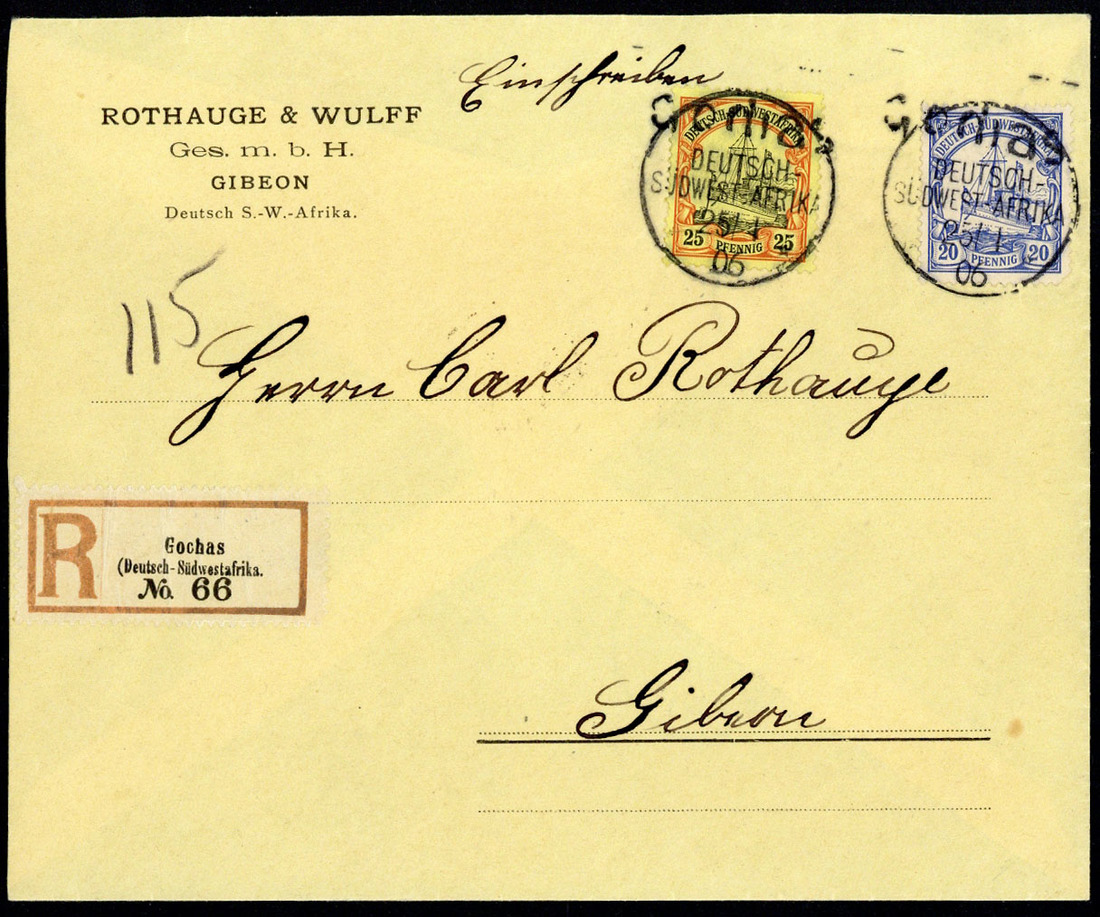 Einschreiben
ROTHAUGE & WULFF
Ges. m. b. H.
GIBEON
Deutsch S.-W.-Afrika.
DEUTSCH-SÜDWESTAFRIKA
25 PFENNIG 25
DEUTSCH-
SÜDWEST-AFRIKA
25/1
06
DEUTSCH-SÜDWESTAFRIKA
20 PFENNIG 20
DEUTSCH-
SÜDWEST-AFRIKA
25/1
06
115
Herrn Carl Rothauge
R
Gochas
(Deutsch-Südwestafrika.
No. 66
Gibeon